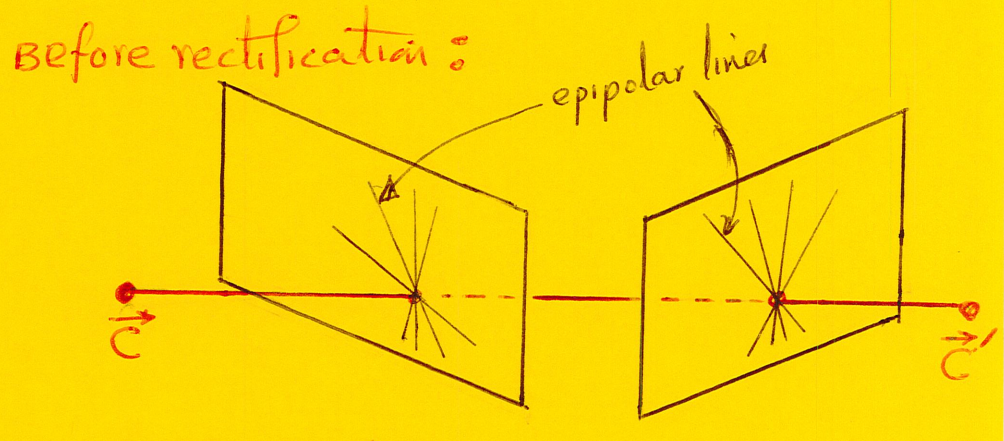 Before rectification:
epipolar lines
C
C'